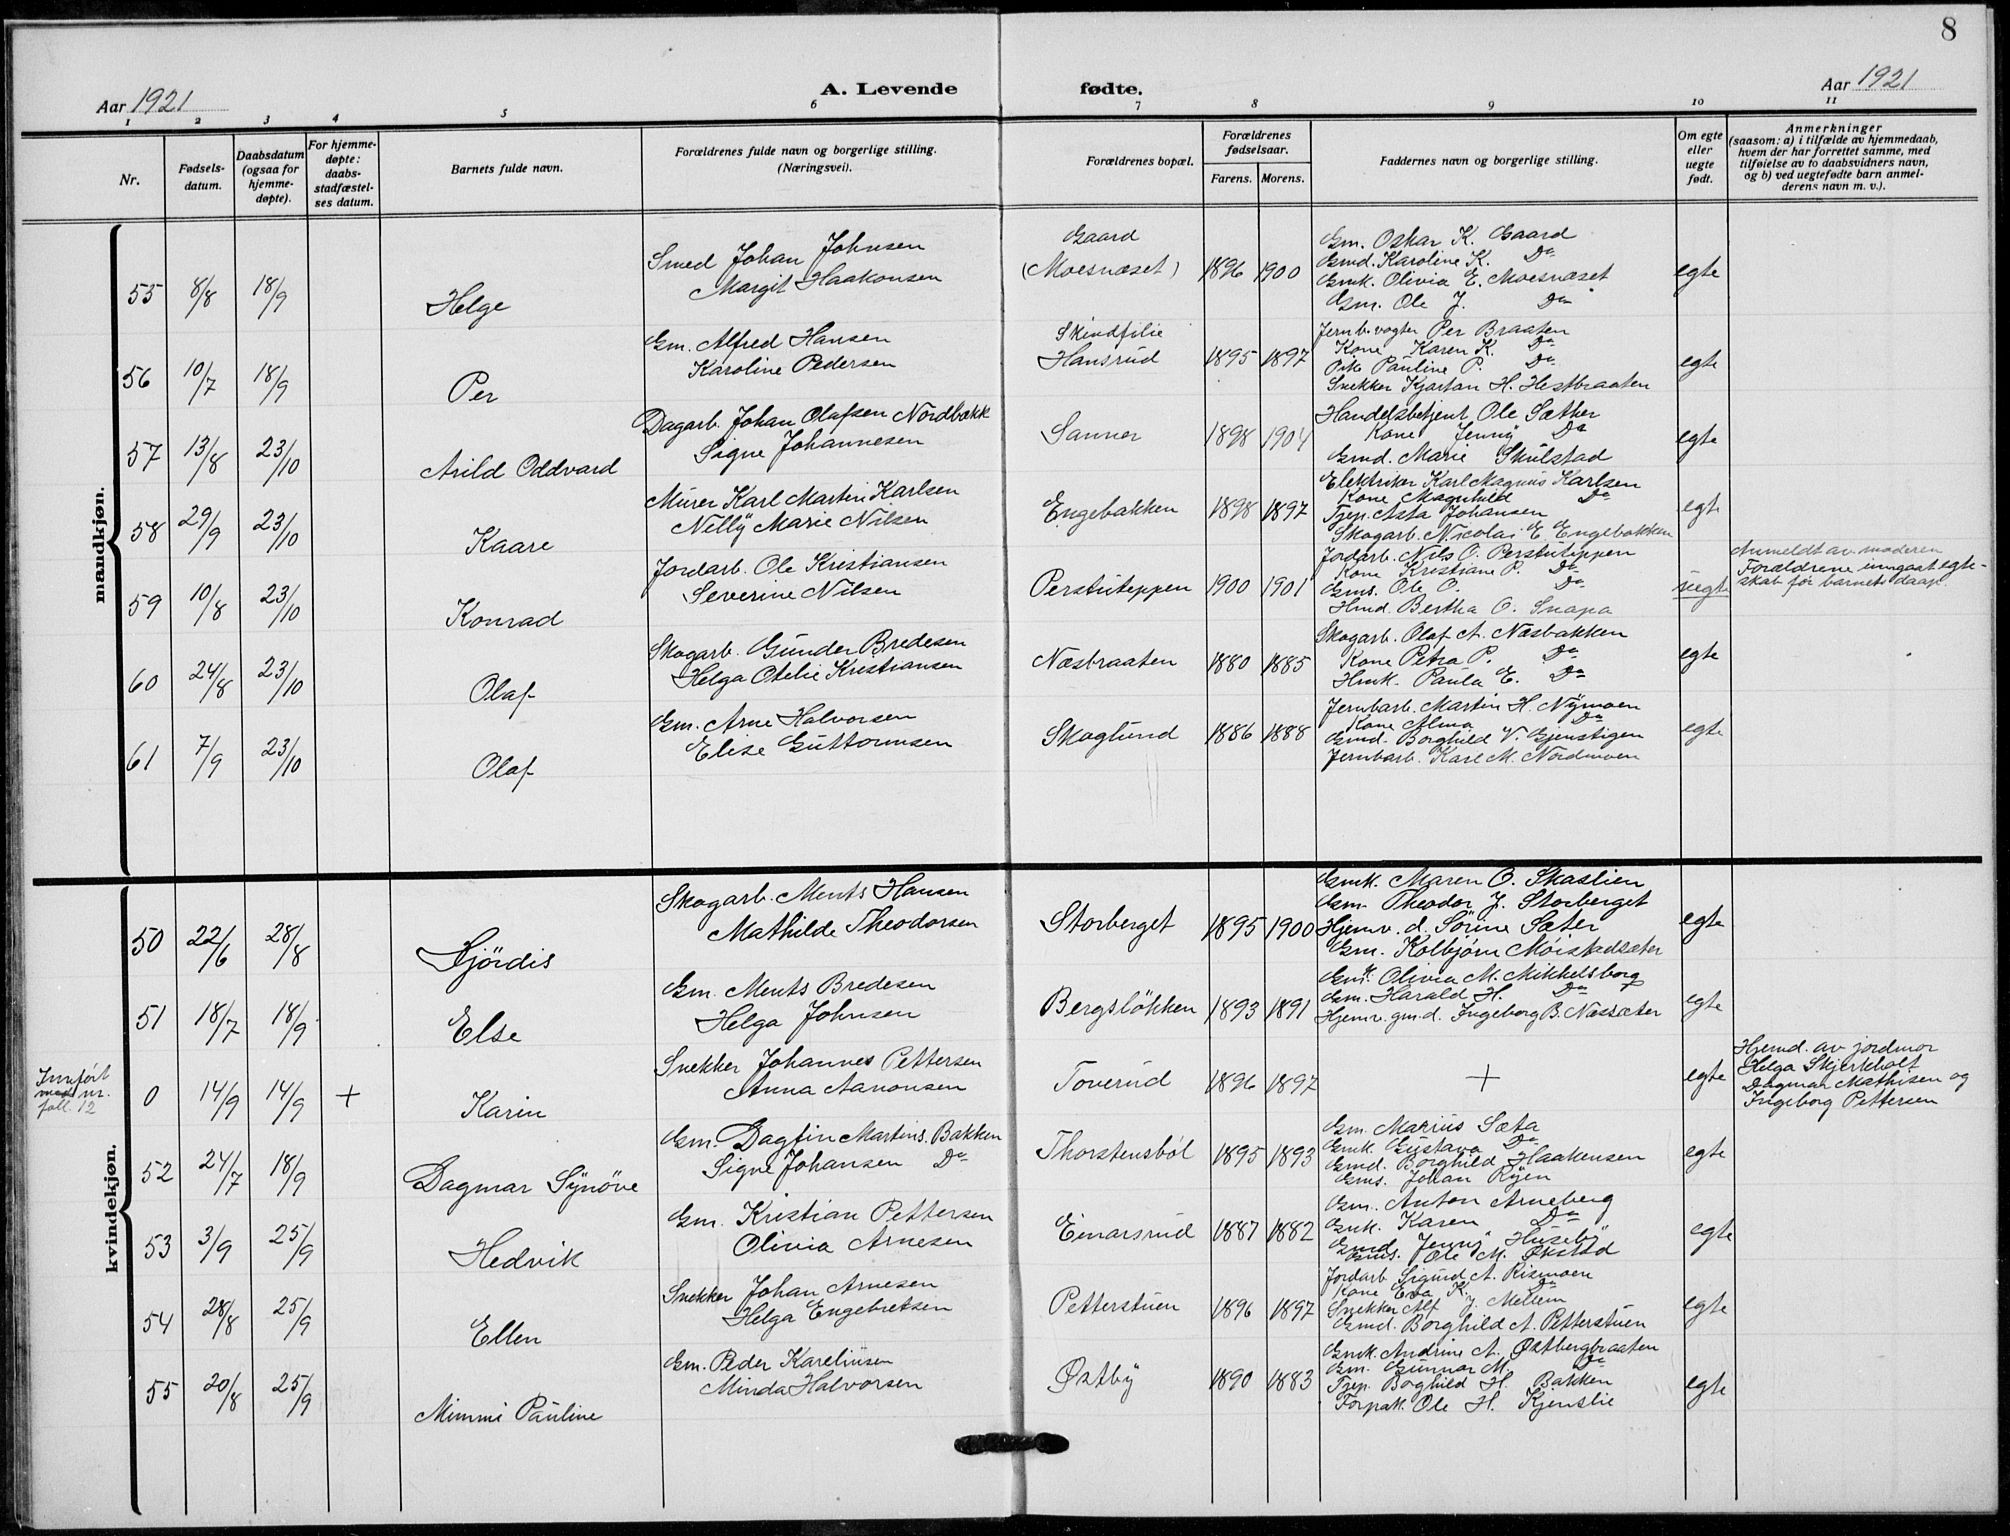 8
Aar 1921
A. Levende fødte.
Aar 1921
1 2 3 4 5 6 7 8 9 10 11
Nr.
Fødsels-
datum.
Daabsdatum
(ogsaa for
hjemme-
døpte).
For hjemme-
døpte:
daabs-
stadfæstel-
ses datum.
Barnets fulde navn.
Forældrenes fulde navn og borgerlige stilling.
(Næringsvei).
Forældrenes bopæl.
Forældrenes
fødselsaar.
Farens. Morens.
Faddernes navn og borgerlige stilling.
Om egte
eller
uegte
født.
Anmerkninger
(saasom: a) i tilfælde av hjemmedaab,
hvem der har forrettet samme, med
tilføielse av to daabsvidners navn,
og b) ved uegtefødte barn anmel-
derens navn m. v.).
mandkjøn.
55 8/8 18/9 Helge
Smed Johan Johnsen
Margit Haakonsen
Gaard
(Moesnæset)
1896 1900
Gm. Oskar K. Gaard
Gmd. Karoline K. Do
Gmk. Olivia E. Moesnæset
Gm. Ole J. Do
egte
56 10/7 18/9 Per
Gm. Alfred Hansen
Karoline Pedersen
Skindfilie
Hansrud
1895 1897
Jernb.vogter Per Braaten
Kone Karen K. Do
Pike Pauline P. Do
Snekker Kjartan H. Hestbraaten
egte
57 13/8 23/10 Arild Oddvard
Dagarb. Johan Olafsen Nordbækk
Signe Johannesen
Sanner
1898 1904
Handelsbetjent Ole Sæther
Kone Jenny Do
Gmd. Marie Skulstad
egte
58 29/9 23/10 Kaare
Murer Karl Martin Karlsen
Nelly Marie Nilsen
Engebakken
1898 1897
Elektriker Karl Magnus Karlsen
Kone Magnhild Do
Tjep. Asta Johansen
Skogarb. Nicolai E. Engebakken
egte
59 10/8 23/10 Konrad
Jordarb. Ole Kristiansen
Severine Nilsen
Perstuteppen
1900 1901
Jordarb. Nils O. Perstuteppen
Kone Kristiane P. Do
Gms. Ole O. Do
Hmd. Bertha O. Snapa
uegte
Anmeldt av moderen
Forældrene inngaat egte-
skab før barnets daap.
60 24/8 23/10 Olaf
Skogarb. Gunder Bredesen
Helga Otelie Kristiansen
Næsbraaten
1880 1885
Skogarb. Olaf A. Næsbakken
Kone Petra P. Do
Hmk. Paula E. Do
egte
61 7/9 23/10 Olaf
Gm. Arne Halvorsen
Elise Guttormsen
Skoglund
1886 1888
Jernbarb. Martin H. Nymoen
Kone Alma Do
Gmd. Borghild V. Gjenstigen
Jernbarb. Karl M. Nordmoen
egte
kvindekjøn.
50 22/6 28/8 Hjördis
Skogarb. Ments Hansen
Mathilde Theodorsen
Storberget
1895 1900
Gmk. Maren O. Skaslien
Gm. Theodor J. Storberget
Hjemv. d. Sörine Sæter
Gm. Kolbjørn Møistadsæter
egte
51 18/7 18/9 Else
Gm. Ments Bredesen
Helga Johnsen
Bergsløkken
1893 1891
Gmk. Olivia M. Mikkelsborg
Gm. Harald H. Do
Hjemv. gm.d. Ingeborg B. Næssæter
egte
Innført
med nr.
foll. 12
0 14/9 14/9 + Karin
Snekker Johannes Pettersen
Anna Aanonsen
Toverud
1896 1897
+
egte
Hjemd. av jordmor
Helga Skjerkholt
Dagmar Mathisen og
Ingeborg Pettersen
52 24/7 18/9 Dagmar Synöve
Gm. Dagfin Martins. Bakken
Signe Johansen Do
Thorstensböl
1895 1893
Gm. Marius Sæta
Gmk. Gustava Do
Gmd. Borghild Haakensen
Gms. Johan Ryen
egte
53 3/9 25/9 Hedvik
Gm. Kristian Pettersen
Olivia Arnesen
Einarsrud
1887 1882
Gm. Anton Arneberg
Gmk. Karen Do
Gmd. Jenny Huseby
Gms. Ole M. Økstad
egte
54 28/8 25/9 Ellen
Snekker Johan Arnesen
Helga Engebretsen
Petterstuen
1896 1897
Jordarb. Sigurd A. Rismoen
Kone Eva K. Do
Snekker Alf J. Mellem
Gmd. Borghild A. Petterstuen
egte
55 20/8 25/9 Mimmi Pauline
Gm. Peder Kareliusen
Minda Halvorsen
Østby
1890 1883
Gmk. Andrine A. Østbergbraaten
Gm. Gunnar M. Do
Tjep. Borghild H. Bakken
Forpakt. Ole H. Kjenslie
egte